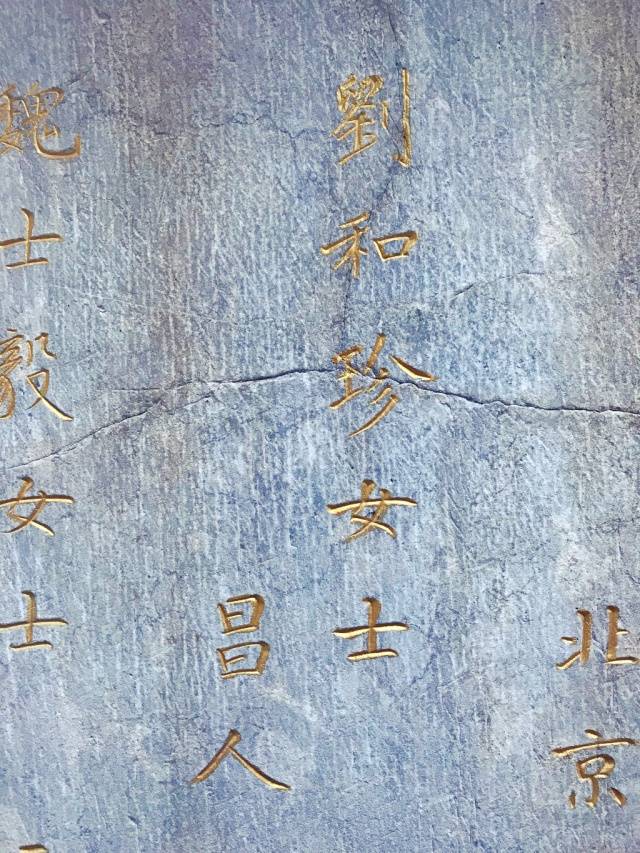 北京
劉和珍女士
昌人
魏士毅女士